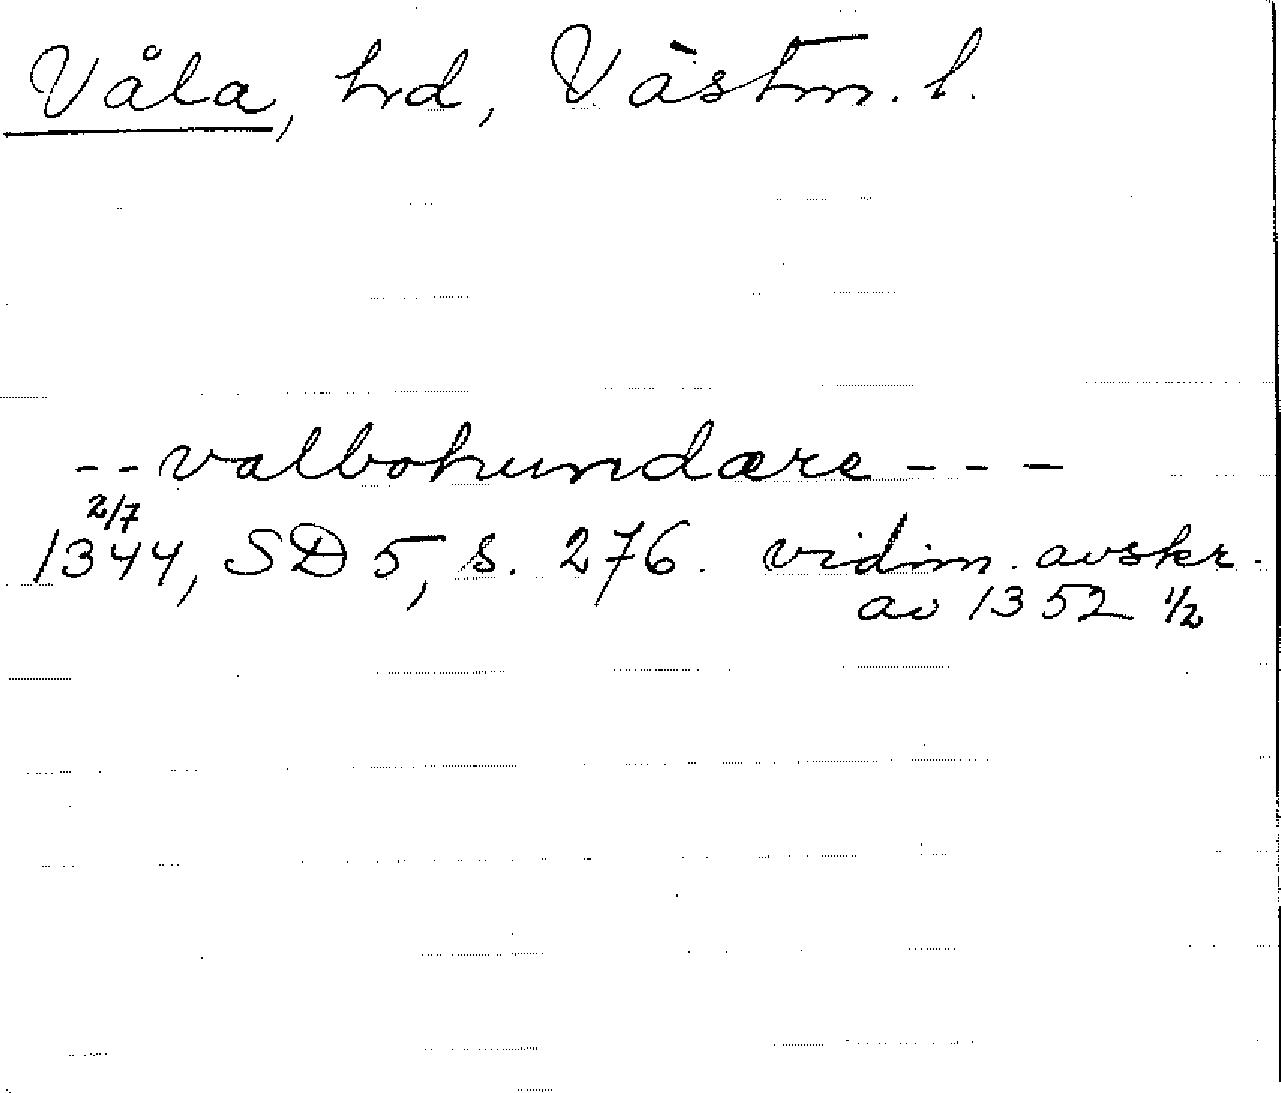 Våla, hrd, Västm. l.
--valbohundære---
2/7
1344, SD 5, s. 276. vidim. avskr.
av 1352 1/2